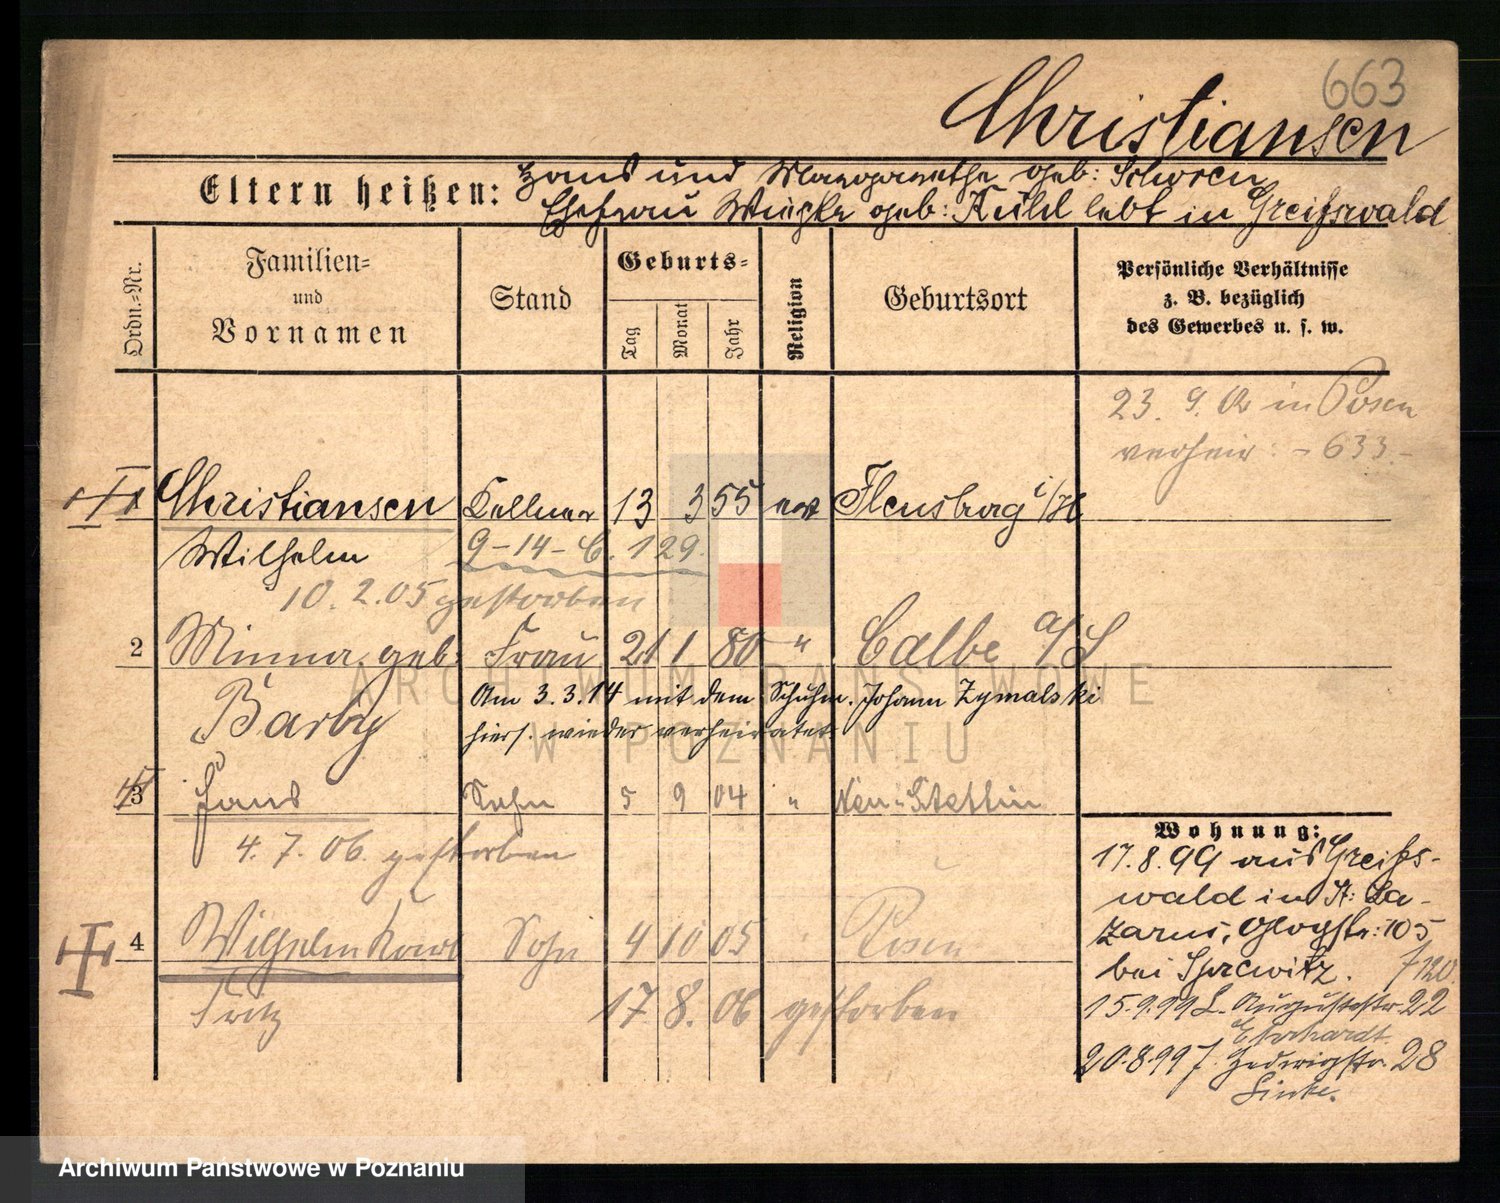 663
Christiansen
Eltern heißen: Hans und Margarethe geb: Schoren
Ehefrau Wiepke geb: Kühl lebt in Greifswald
Ordn.-Nr.
Familien-
und
Vornamen
Stand
Geburts-
Tag
Monat
Jahr
Religion
Geburtsort
Persönliche Verhältnisse
z. B. bezüglich
des Gewerbes u. s. w.
23. 9. 02 in Posen
verheir: - 633.-
1 Christiansen Kellner 13 3 55 ev Flensburg i/H
Wilhelm 9-14-C. 129.
10. 2. 05 gestorben
2 Minna, geb. Frau 21 1 80 " Calbe a/S
Barby Am 3.3.14 mit dem Schuhm. Johann Zymalski
hiers. wieder verheiratet
3 Hans Sohn 5 9 04 " Neu-Stettin
4. 7. 06. gestorben
4 Wilhelm Karl Sohn 4 10 05 Posen
Fritz 17. 8. 06 gestorben
Wohnung:
17.8.99 aus Greifs-
wald in St: La-
zarus, Glogstr: 105
bei
15.9.99 L. Augustastr 22
Ehrhardt
20.8.99 J. Hedwigstr. 28
Linke.
ARCHIWUM PAŃSTWOWE
W POZNANIU
Archiwum Państwowe w Poznaniu